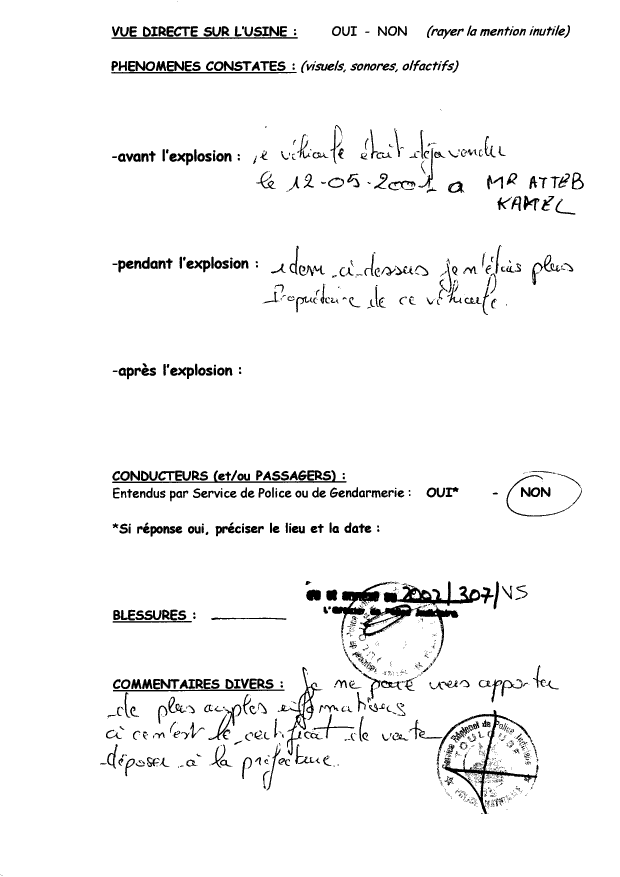 VUE DIRECTE SUR L'USINE : OUI - NON (rayer la mention inutile)
PHENOMENES CONSTATES : (visuels, sonores, olfactifs)
-avant l'explosion : le véhicule était déja vendu
le 12-05-2001 a MR ATTEB
KAMEL
-pendant l'explosion : idem ci-dessus je n'étais plus
Propriétaire de ce véhicule.
-après l'explosion :
CONDUCTEURS (et/ou PASSAGERS) :
Entendus par Service de Police ou de Gendarmerie : OUI* - NON
*Si réponse oui, préciser le lieu et la date :
Vu et annexé au 2002/307/VS
L'Officier de Police Judiciaire
BLESSURES :
COMMENTAIRES DIVERS : Je ne peux vous apporter
de plus amples informations
si ce n'est le certificat de vente
déposer à la préfecture.
Service Régional de Police Judiciaire
TOULOUSE